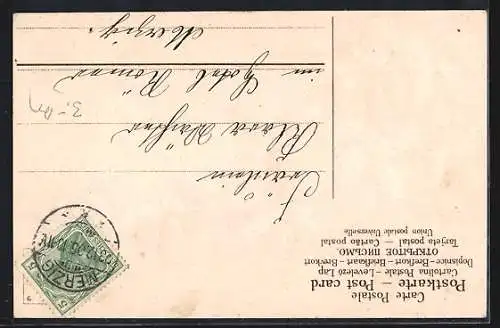 Carte Postale
Postkarte — Post card
Cartolina Postale – Levelező Lap
Dopisnice – Brefkort – Briefkaart – Brevkort
ОТКРЫТОЕ ПИСЬМО.
Tarjeta postal — Cartão postal
Union postale Universelle
Fräulein
Klara
im Hotel Römer
Merzig.
MERZIG
5 5
3.-